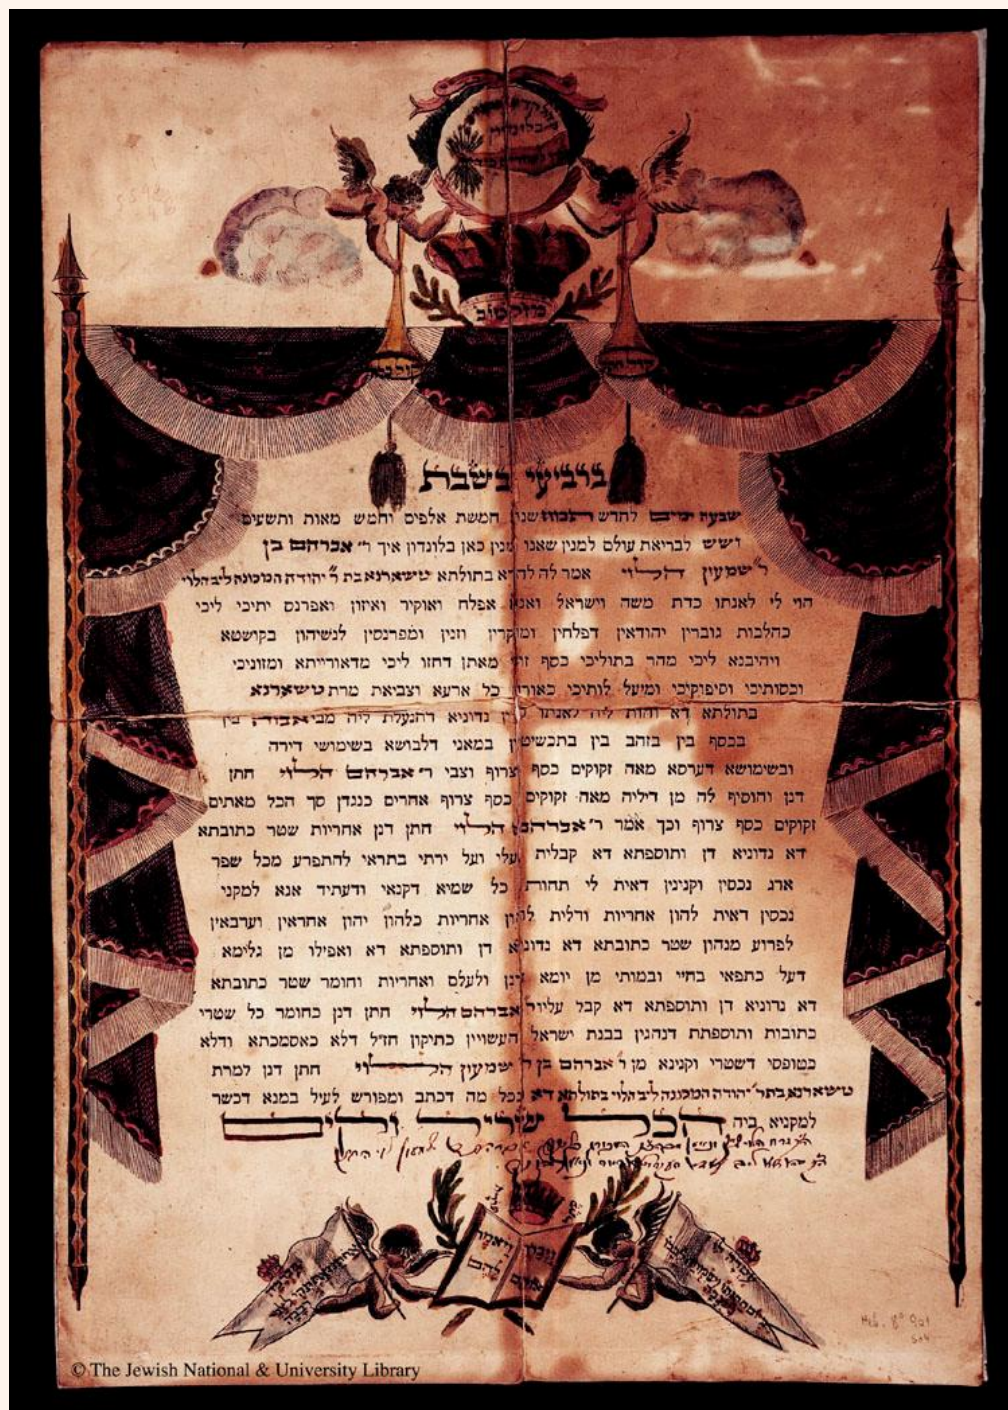 מזל טוב
ברביעי בשבת
שבעה ימים לחדש תמוז שנת חמשת אלפים וחמש מאות ותשעים
ושש לבריאת עולם למנין שאנו מנין כאן בלונדון איך ר' אברהם בן
ר' שמעון הלוי אמר לה להדא בתולתא טשארנא בת ר' יהודה המכונה ליב הלוי
הוי לי לאנתו כדת משה וישראל ואנא אפלח ואוקיר ואיזון ואפרנס יתיכי ליכי
כהלכות גוברין יהודאין דפלחין ומוקרין וזנין ומפרנסין לנשיהון בקושטא
ויהיבנא ליכי מהר בתוליכי כסף זוזי מאתן דחזו ליכי מדאורייתא ומזוניכי
וכסותיכי וסיפוקיכי ומיעל לותיכי כאורח כל ארעא וצביאת מרת טשארנא
בתולתא דא והות ליה לאנתו ודין נדוניא דהנעלת ליה מבי אבוה בין
בכסף בין בזהב בין בתכשיטין במאני דלבושא בשימושי דירה
ובשימושא דערסא מאה זקוקים כסף צרוף וצבי ר' אברהם הלוי חתן
דנן והוסיף לה מן דיליה מאה זקוקים כסף צרוף אחרים כנגדן סך הכל מאתים
זקוקים כסף צרוף וכך אמר ר' אברהם הלוי חתן דנן אחריות שטר כתובתא
דא נדוניא דן ותוספתא דא קבלית עלי ועל ירתי בתראי להתפרע מכל שפר
ארג נכסין וקנינין דאית לי תחות כל שמיא דקנאי ודעתיד אנא למקני
נכסין דאית להון אחריות ודלית להון אחריות כלהון יהון אחראין וערבאין
לפרוע מנהון שטר כתובתא דא נדוניא דן ותוספתא דא ואפילו מן גלימא
דעל כתפאי בחיי ובמותי מן יומא דנן ולעלם ואחריות וחומר שטר כתובתא
דא נדוניא דן ותוספתא דא קבל עליו ר' אברהם הלוי חתן דנן כחומר כל שטרי
כתובות ותוספתת דנהגין בבנת ישראל העשויין כתיקון חז"ל דלא כאסמכתא ודלא
כטופסי דשטרי וקנינא מן ר' אברהם בן ר' שמעון הלוי חתן דנן למרת
טשארנא בת ר' יהודה המכונה ליב הלוי בתולתא דא ככל מה דכתב ומפורש לעיל במנא דכשר
למקניא ביה הכל שריר וקים
© The Jewish National & University Library